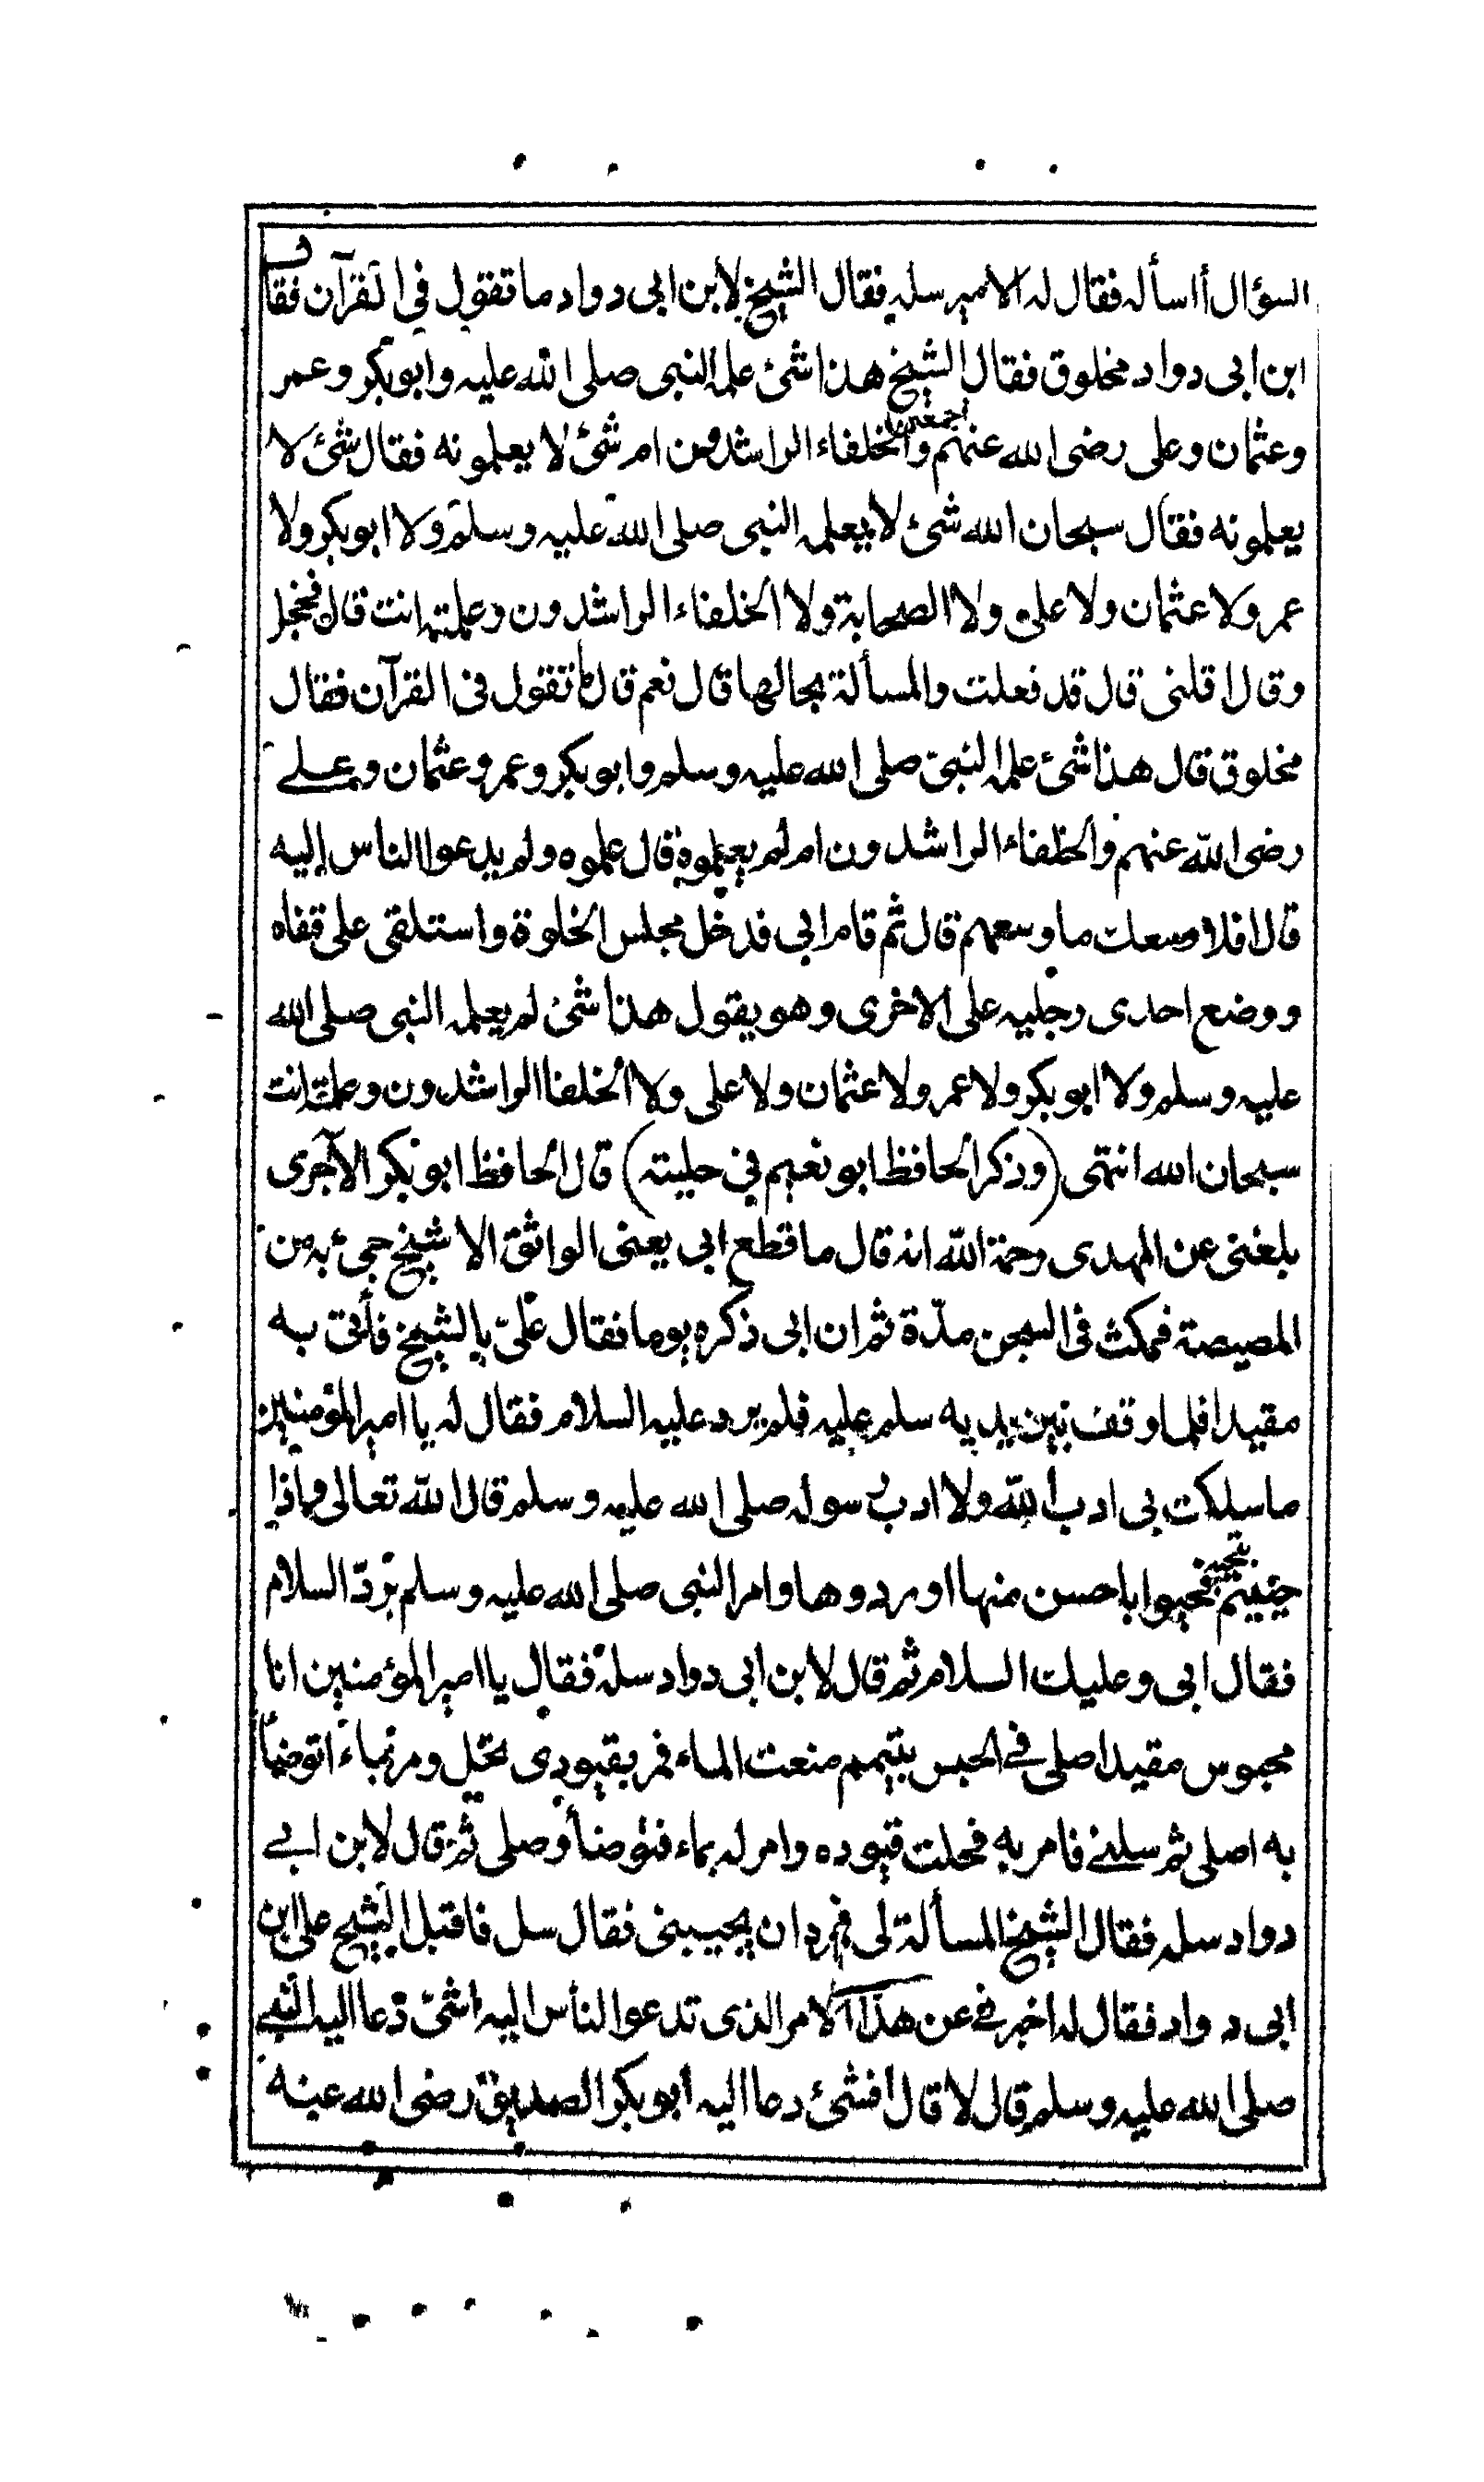 السؤال أاسأله فقال له الامير سله فقال الشيخ لابن ابى دواد ما تقول فى القرآن فقال
ابن ابى دواد مخلوق فقال الشيخ هذا شئ علمه النبى صلى الله عليه وابو بكر وعمر
وعثمان وعلى رضى الله عنهم اجمعين والخلفاء الراشدون ام شئ لا يعلمونه فقال شئ لا
يعلمونه فقال سبحان الله شئ لا يعلمه النبى صلى الله عليه وسلم ولا ابو بكر ولا
عمر ولا عثمان ولا على ولا الصحابة ولا الخلفاء الراشدون وعلمته انت قال فخجل
وقال اقلنى قال قد فعلت والمسألة بحالها قال نعم قال ما تقول فى القرآن فقال
مخلوق قال هذا شئ علمه النبى صلى الله عليه وسلم وابو بكر وعمر وعثمان وعلے
رضى الله عنهم والخلفاء الراشدون ام لم يعلموه قال علموه ولم يدعوا الناس إليه
قال افلا وسعك ما وسعهم قال ثم قام ابى فدخل مجلس الخلوة واستلقى على قفاه
ووضع احدى رجليه على الاخرى وهو يقول هذا شئ لم يعلمه النبى صلى الله
عليه وسلم ولا ابو بكر ولا عمر ولا عثمان ولا على ولا الخلفا الراشدون وعلمته انت
سبحان الله انتهى (وذكر الحافظ ابو نعيم فى حليته) قال الحافظ ابو بكر الآجرى
بلغنى عن المهدى رحمة الله انه قال ما قطع ابى يعنى الواثق الا شيخ جئ به من
المصيصة فمكث فى السجن مدّة ثم ان ابى ذكره يوما فقال علىّ بالشيخ فأتى به
مقيدا فلما وقف بين يديه سلم عليه فلم يرد عليه السلام فقال له يا امير المؤمنين
ما سلكت بى ادب الله ولا ادب رسوله صلى الله عليه وسلم قال الله تعالى واذا
حييتم بتحية فحيوا باحسن منها او ردوها وامر النبى صلى الله عليه وسلم بردّ السلام
فقال ابى وعليك السلام ثم قال لابن ابى دواد سله فقال يا امير المؤمنين انا
محبوس مقيد اصلى فے الحبس بتيمم منعت الماء فمر بقيودى تحل ومر بماء اتوضأ
به اصلى ثم سلنے فامر به فحلت قيوده وامر له بماء فتوضأ وصلى ثم قال لابن ابے
دواد سله فقال الشيخ المسألة لى فمره ان يجيبنى فقال سل فاقبل الشيخ على ابن
ابى دواد فقال له اخبرنے عن هذا الامر الذى تدعوا لناس اليه اشئ دعا اليه النبے
صلى الله عليه وسلم قال لا قال افشئ دعا اليه ابو بكر الصديق رضى الله عنه